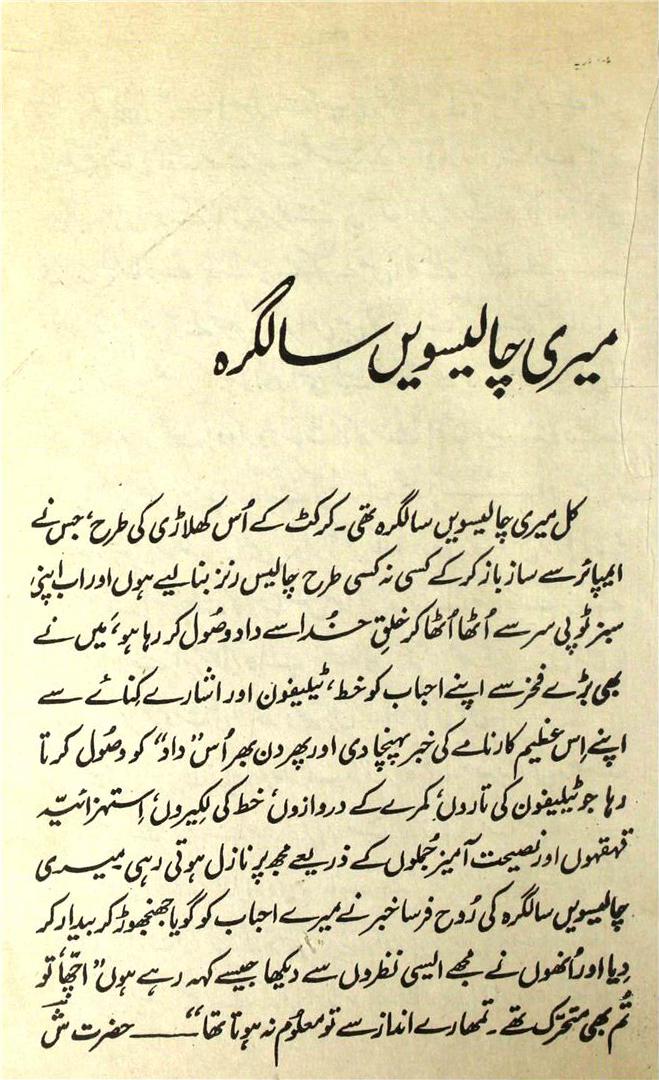 میری چالیسویں سالگرہ
کل میری چالیسویں سالگرہ تھی۔ کرکٹ کے اُس کھلاڑی کی طرح، جس نے
ایمپائر سے ساز باز کر کے کسی نہ کسی طرح چالیس رنز بنا لیے ہوں اور اب اپنی
سبز ٹوپی سر سے اُٹھا اُٹھا کر خلقِ خُدا سے داد وصُول کر رہا ہو، مَیں نے
بھی بڑے فخر سے اپنے احباب کو خط، ٹیلیفون اور اشارے کِنائے سے
اپنے اِس عظیم کارنامے کی خبر پہنچا دی اور پھر دن بھر اُس ”داد“ کو وصُول کرتا
رہا جو ٹیلیفون کی تاروں، کمرے کے دروازوں، خط کی لکیروں، اِستہزائیّہ
قہقہوں اور نصیحت آمیز جُملوں کے ذریعے مجھ پر نازل ہوتی رہی۔ میری
چالیسویں سالگرہ کی رُوح فرسا خبر نے میرے احباب کو گویا جھنجھوڑ کر بیدار کر
دِیا اور اُنھوں نے مجھے ایسی نظروں سے دیکھا جیسے کہہ رہے ہوں ”اچّھا، تو
تُم بھی متحرّک تھے۔ تمھارے انداز سے تو معلُوم نہ ہوتا تھا“ ــــــ حضرت ش